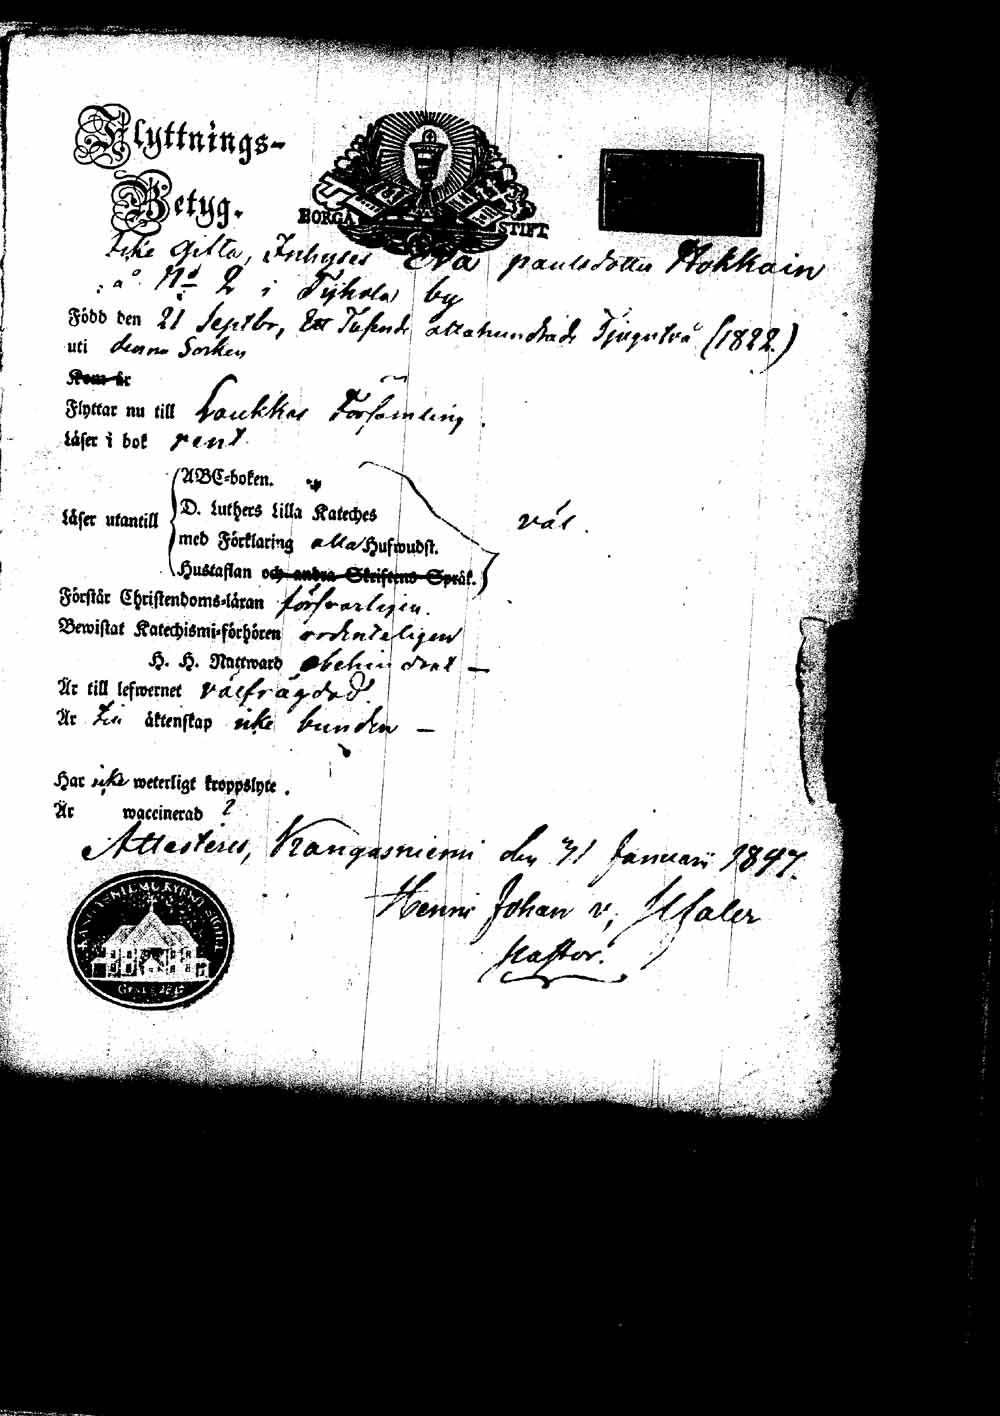 Flyttnings-
Betyg.
BORGÅ STIFT
Icke gifta, Inhyses Eva paulsdotter Hokkain
å No 2 i Tyhola by
Född den 21 Septbr, Ett Tusende attahundrade Tjugutvå (1822.)
uti denna Socken
Kom är
Flyttar nu till Laukkas Församling.
Läser i bok rent
ABC-boken.
Läser utantill D. Luthers Lilla Kateches väl.
med Förklaring alla Hufwudst.
Hustaflan och andra Skriftens Språk.
Förstår Christendoms-läran försvarligen.
Bewistat Katechismi-förhören ordenteligen
H. H. Nattward obehindrat —
Är till lefwernet välfrägdad
Är till äktenskap icke bunden —
Har icke weterligt kroppslyte.
Är waccinerad ?
Attesteras, Kangasniemi den 31 Januarii 1847.
Henric Johan v,
Pastor.
KANGASNIEMI KYRKAS SIGILL